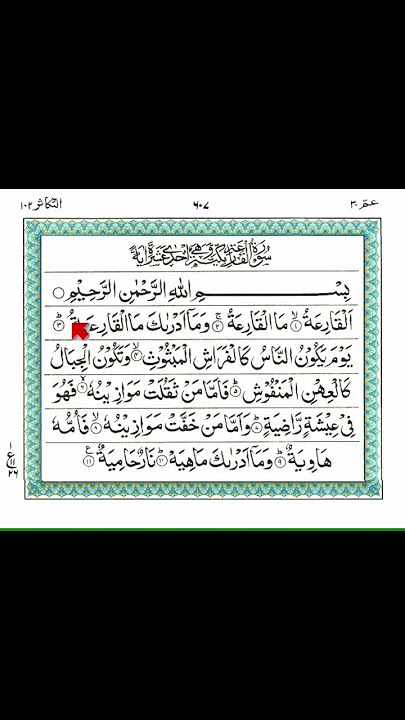 عمّ ٣٠
٦٠٧
التكاثر ١٠٢
سُوْرَةُ الْقَارِعَةِ مَكِّيَّةٌ وَّهِىَ اِحْدٰى عَشْرَةَ اٰيَةً
بِسْــــمِ اللهِ الرَّحْمٰنِ الرَّحِيْمِ ○
اَلْقَارِعَةُ ۙ﴿١﴾ مَا الْقَارِعَةُ ۚ﴿٢﴾ وَمَاۤ اَدْرٰىكَ مَا الْقَارِعَةُ ؕ﴿٣﴾
يَوْمَ يَكُوْنُ النَّاسُ كَالْفَرَاشِ الْمَبْثُوْثِ ۙ﴿٤﴾ وَتَكُوْنُ الْجِبَالُ
كَالْعِهْنِ الْمَنْفُوْشِ ؕ﴿٥﴾ فَاَمَّا مَنْ ثَقُلَتْ مَوَازِيْنُهٗ ۙ﴿٦﴾ فَهُوَ
فِىْ عِيْشَةٍ رَّاضِيَةٍ ؕ﴿٧﴾ وَاَمَّا مَنْ خَفَّتْ مَوَازِيْنُهٗ ۙ﴿٨﴾ فَاُمُّهٗ
هَاوِيَةٌ ؕ﴿٩﴾ وَمَاۤ اَدْرٰىكَ مَاهِيَهْ ؕ﴿١٠﴾ نَارٌ حَامِيَةٌ ﴿١١﴾ ع
١
ع ١١
٢٦